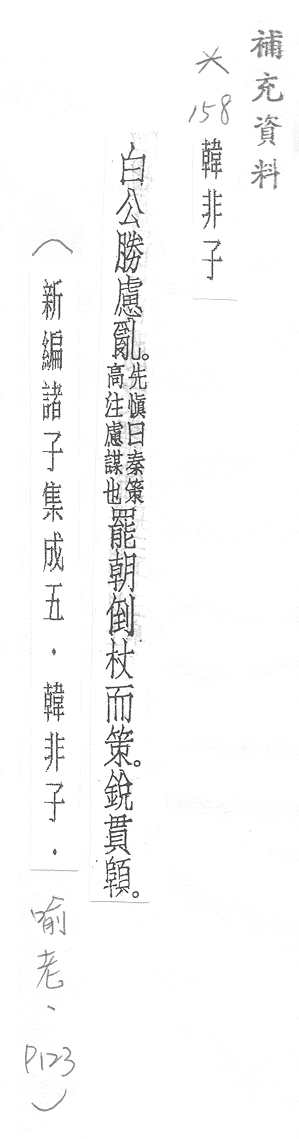 補充資料
*158韓非子
白公勝慮亂。先慎曰秦策高注慮謀也罷朝倒杖而策。銳貫顊。
(新編諸子集成五.韓非子.喻老、P123)